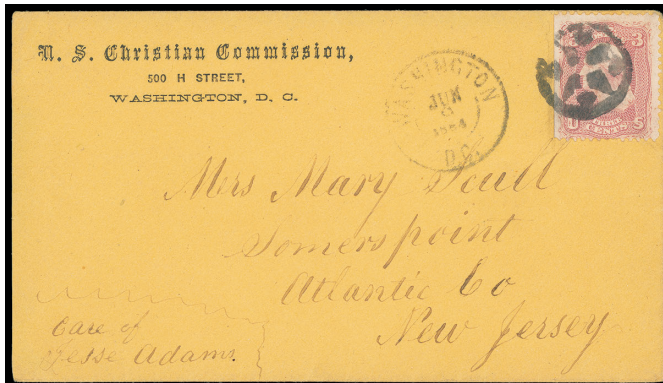 U. S. Christian Commission,
500 H STREET,
WASHINGTON, D. C.
WASHINGTON
JUN
1864
D.C.
3
U S
CENTS
Mrs Mary Scull
Somerspoint
Atlantic Co
New Jersey
Care of
Jesse Adams.